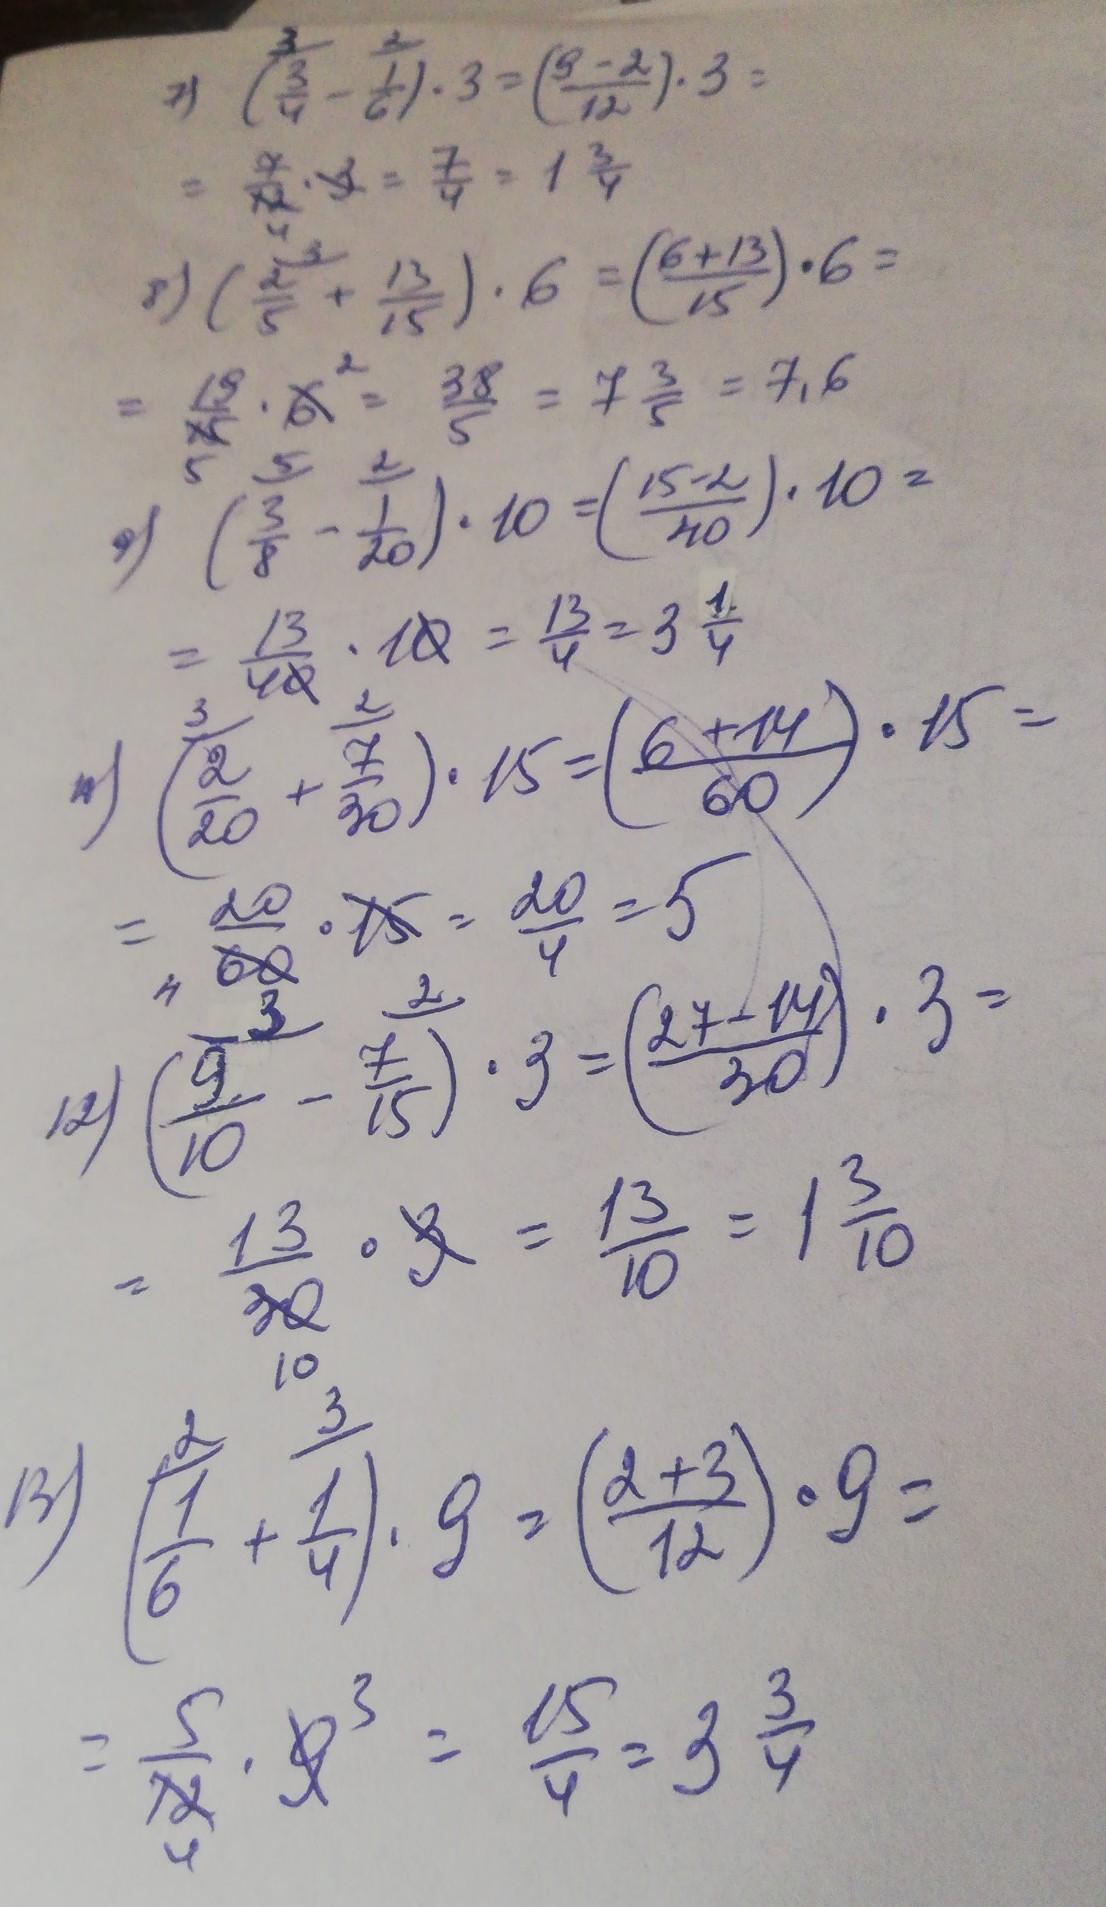 7) (3/4 - 1/6) · 3 = ((9-2)/12) · 3 =
= 7/12 · 3 = 7/4 = 1 3/4
8) (2/5 + 13/15) · 6 = ((6+13)/15) · 6 =
= 19/15 · 6 2 = 38/5 = 7 3/5 = 7,6
9) (3/8 - 1/20) · 10 = ((15-2)/40) · 10 =
= 13/40 · 10 = 13/4 = 3 1/4
11) (2/20 + 7/30) · 15 = ((6+14)/60) · 15 =
= 20/60 · 15 = 20/4 = 5
12) (9/10 - 7/15) · 3 = ((27-14)/30) · 3 =
= 13/30 · 3 = 13/10 = 1 3/10
13) (1/6 + 1/4) · 9 = ((2+3)/12) · 9 =
= 5/12 · 9 3 = 15/4 = 3 3/4